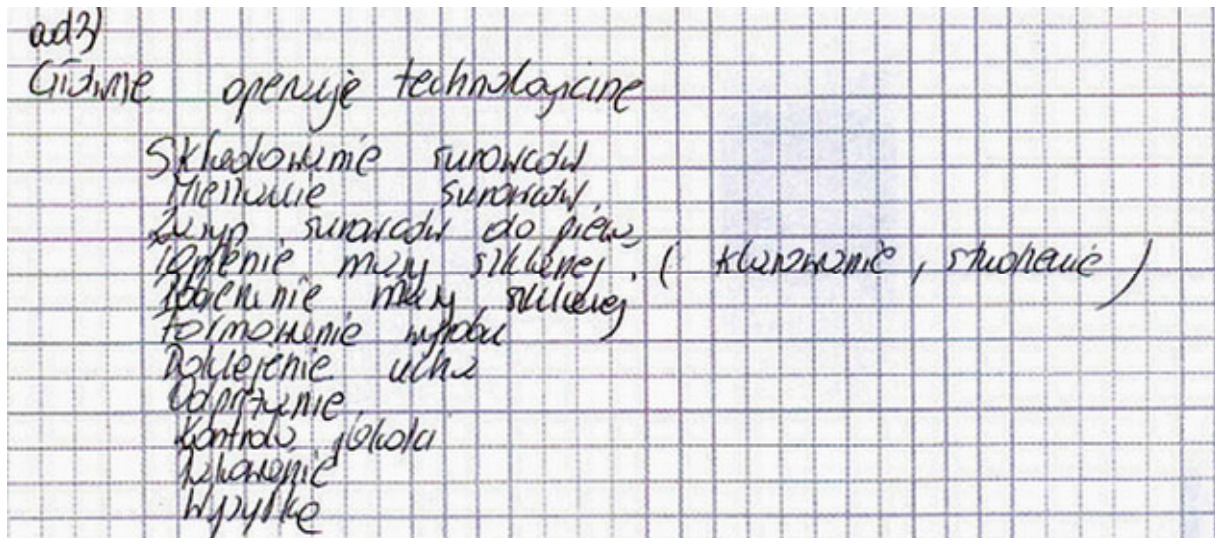 ad3)
Główne operacje technologiczne
Składowanie surowców
Mieszanie surowców
Zasyp surowców do pieca
Topienie masy szklanej. (klarowanie, studzenie)
Nabieranie masy szklanej
Formowanie wyrobu
Doklejenie ucha
Odprężanie
Kontrola jakości
Pakowanie
Wysyłka